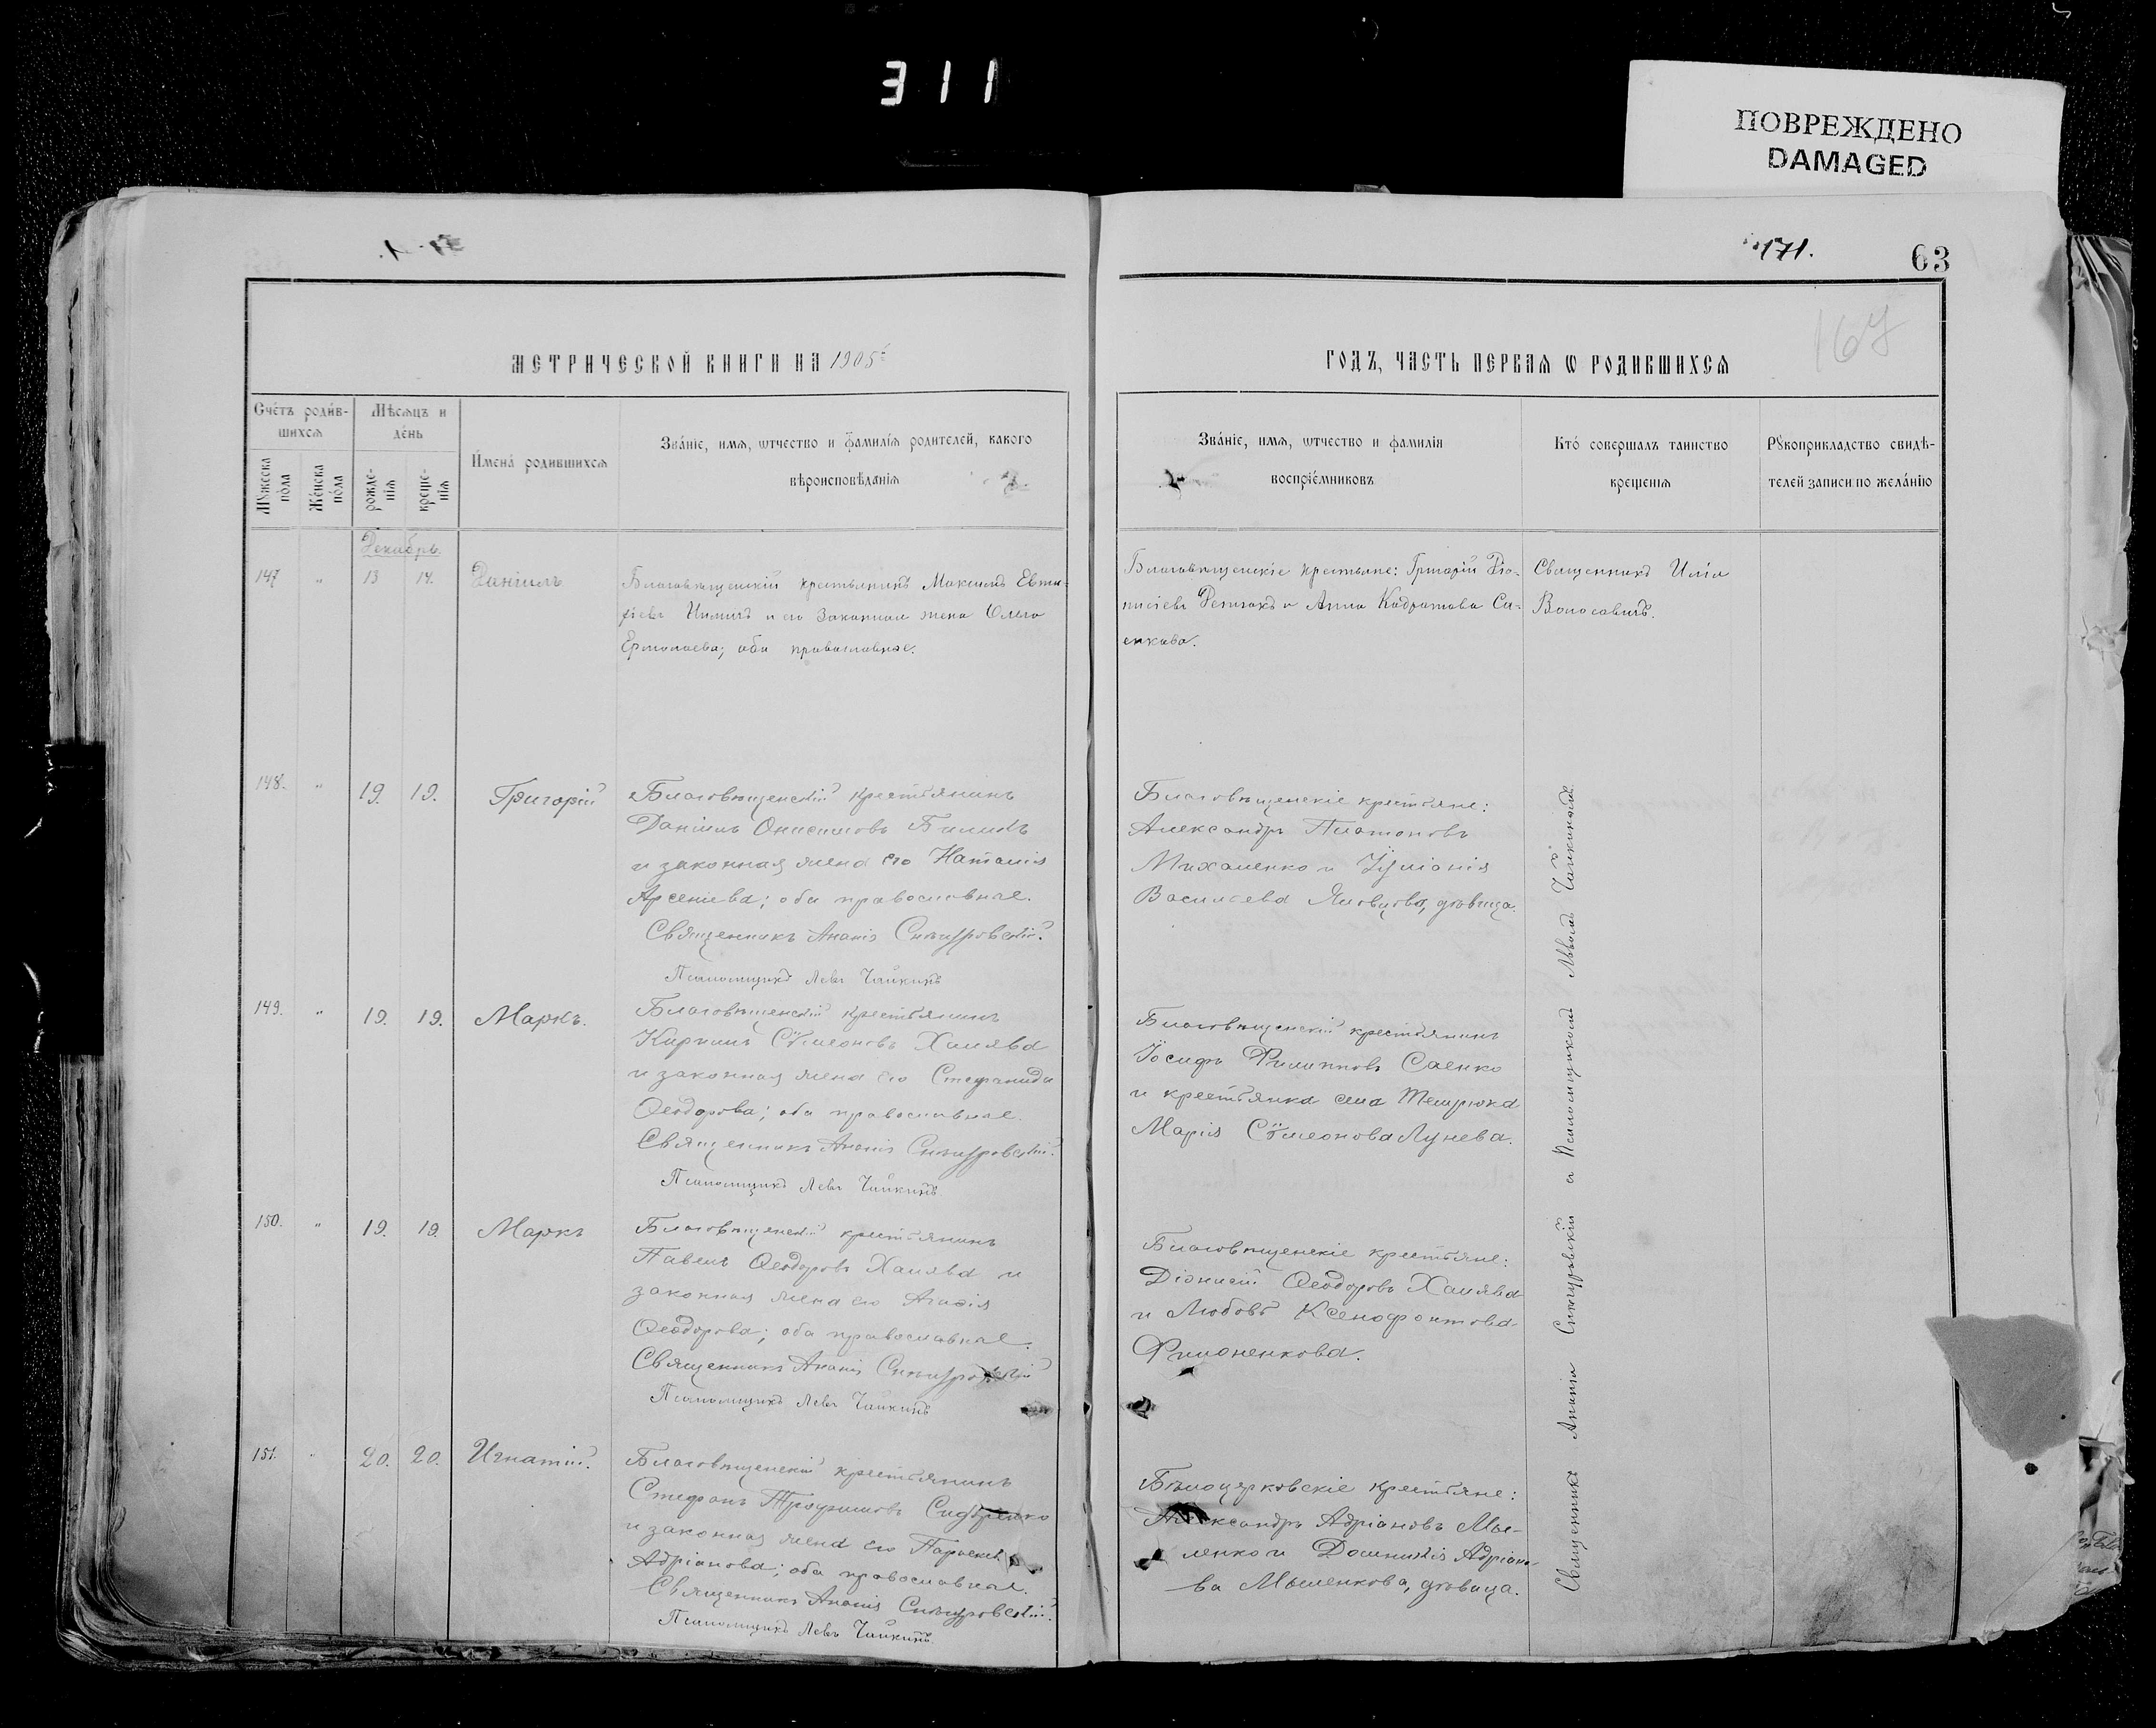 311
ПОВРЕЖДЕНО
DAMAGED
171.
63
167
МЕТРИЧЕСКОЙ КНИГИ НА 1905й
ГОДЪ, ЧАСТЬ ПЕРВАЯ Ѡ РОДИВШИХСЯ
Счетъ родив-
шихся
Мужеска
пола
Женска
пола
Мѣсяцъ и
день
рожде-
нія
креще-
нія
Имена родившихся
Званіе, имя, ѡтчество и фамилія родителей, какого
вѣроисповѣданія
Званіе, имя, ѡтчество и фамилія
воспріемниковъ
Кто совершалъ таинство
крещенія
Рукоприкладство свидѣ-
телей записи по желанію
Декабрь.
147 " 13 14. Даніилъ
Благовѣщенскій крестьянинъ Максимъ Евти-
фіевъ и его законная жена Ольга
Ермолаева; оба православные.
Благовѣщенскіе крестьяне: Григорій Діо-
нисіевъ и Анна Кодратова Са-
енкова.
Священникъ Илія
Волосевичъ.
148. " 19. 19. Григорій
Благовѣщенскій крестьянинъ
Даніилъ Онисимовъ Билыкъ
и законная жена его Наталія
Арсеніева; оба православные.
Священникъ Ананія Снѣгуровскій.
Псаломщикъ Левъ Чайкинъ
Благовѣщенскіе крестьяне:
Александръ Платоновъ
Михаленко и Іуліанія
Василіева Яковцова, дѣвица.
149. " 19. 19. Маркъ.
Благовѣщенскій крестьянинъ
Кириллъ Сѷмеоновъ Халява
и законная жена его Стефанида
Ѳеодорова; оба православные.
Священникъ Ананія Снѣгуровскій.
Псаломщикъ Левъ Чайкинъ
Благовѣщенскій крестьянинъ
Іосифъ Филипповъ Саенко
и крестьянка села Темрюка
Марія Сѷмеонова Лунева.
150. " 19. 19. Маркъ
Благовѣщенскій крестьянинъ
Павелъ Ѳеодоровъ Халява и
законная жена его Агафія
Ѳеодорова; оба православные.
Священникъ Ананія Снѣгуровскій
Псаломщикъ Левъ Чайкинъ
Благовѣщенскіе крестьяне:
Діонисій Ѳеодоровъ Халява
и Любовь Ксенофонтова
Филоненкова.
151. " 20. 20. Игнатій.
Благовѣщенскій крестьянинъ
Стефанъ Трофимовъ Сидоренко
и законная жена его
Адріанова; оба православные.
Священникъ Ананія Снѣгуровскій.
Псаломщикъ Левъ Чайкинъ.
Бѣлоцерковскіе крестьяне:
Александръ Адріановъ Мы-
ленко и Домникія Адріано-
ва Мыленкова, дѣвица.
Священникъ Ананія Снѣгуровскій съ Псаломщикомъ Львомъ Чайкинымъ.